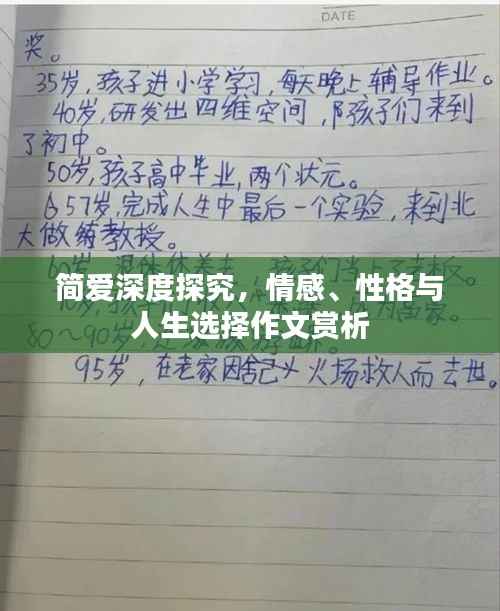 DATE
奖。
35岁,孩子进小学学习,每天晚上辅导作业。
40岁,研发出四维空间,陪孩子们来到
了初中。
50岁,孩子高中毕业,两个状元。
57岁,完成人生中最后一个实验,来到北
大做教授。
简爱深度探究，情感、性格与
人生选择作文赏析
80~90岁,
95岁,在老家因舍己火场救人而去世。